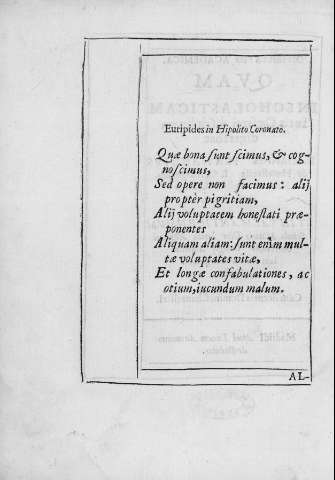 Euripides in Hipolito Coronato.
Quæ bona sunt scimus, & cog-
noscimus,
Sed opere non facimus: alij
propter pigritiam,
Alij voluptatem honestati præ-
ponentes
Aliquam aliam: sunt enim mul-
tæ voluptates vitæ,
Et longæ confabulationes, ac
otium, iucundum malum.
AL-